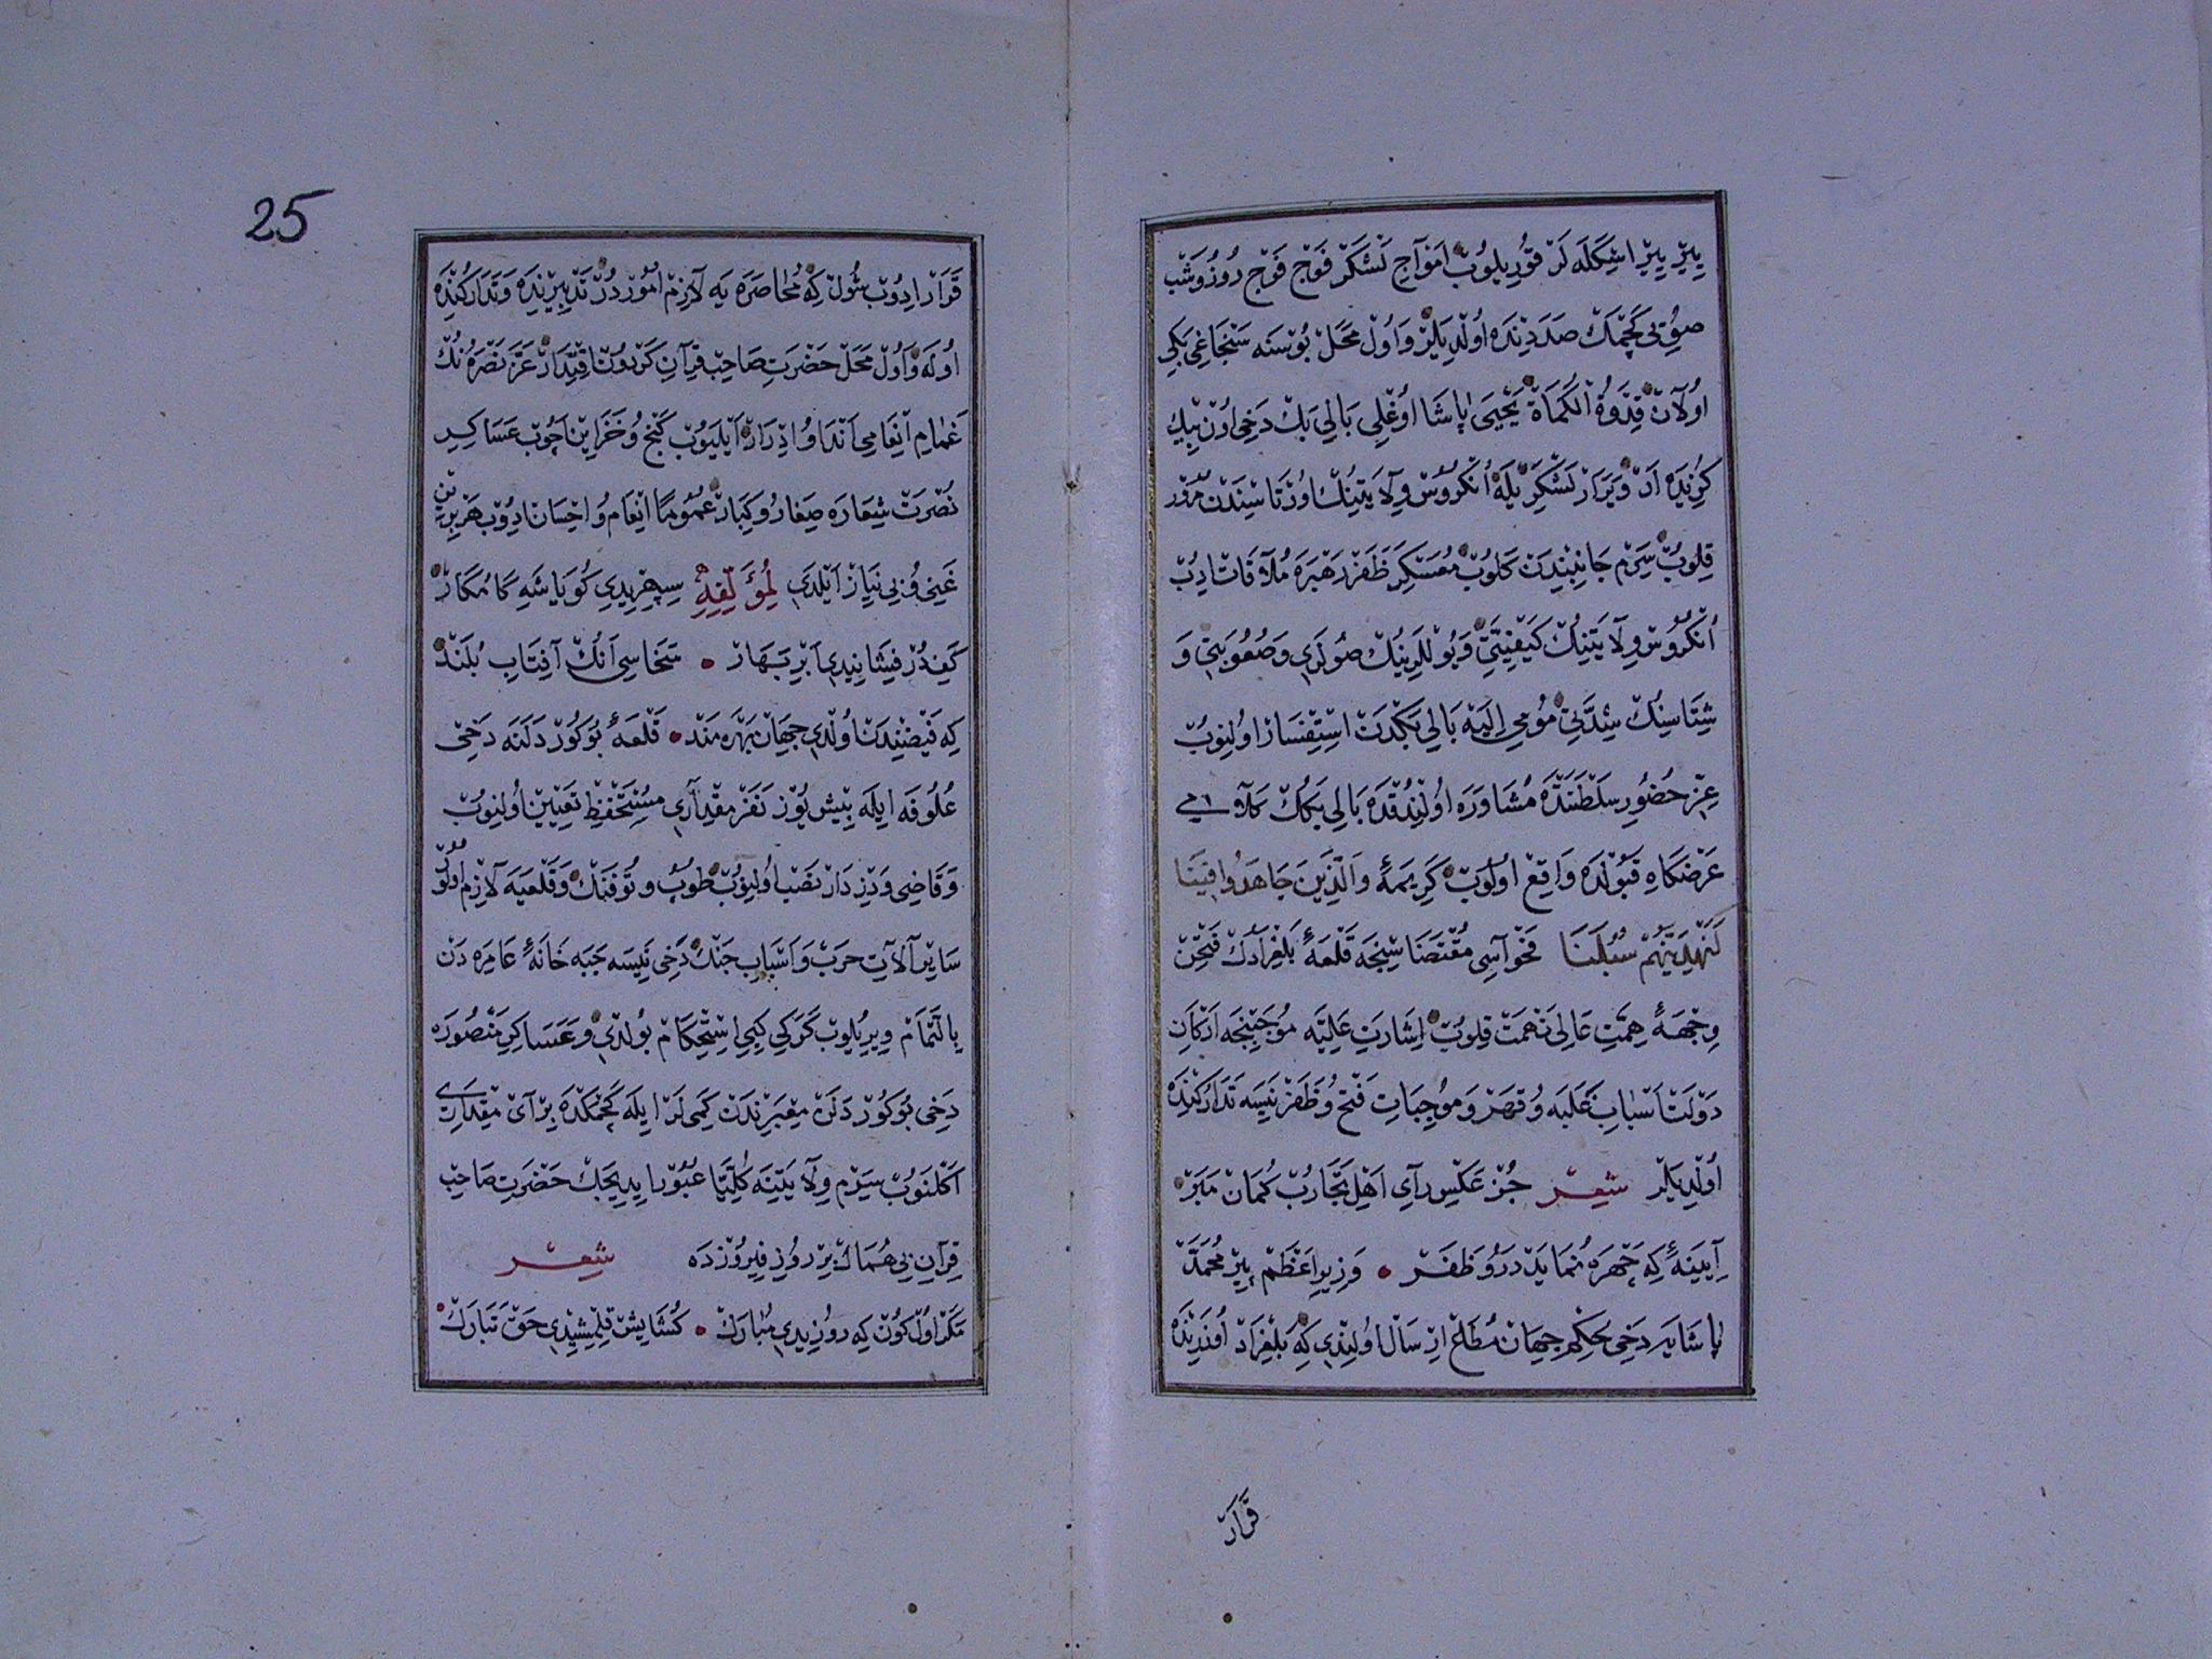 یِیرْ یِیرْ اسْکَلَه لَرْ قُورِیلُوبْ اَمْوَاجِ لَشْکَرْ فَوْج فَوْج رُوزُ وشَبْ
صُویِی کَچْمَكْ صَدَدِینْدَه اُولْدِیلَرْ وَاوُلْ مَحَلْ بُوسْنَه سَنْجَاغِی بَکِی
اوُلَانْ قِدْوَةُ الْکُمَاة یَحْیَی پَاشَا اُوغْلِی بَالِی بَكْ دَخِی اوُنْ بِیكْ
کُزِیدَه اَرْ وَیَرَارْ لَشْکَرْ یلَه اُنْکُرُوسْ وِلَایَتِینُكْ اوُرْتَاسِینْدَنْ مُرُورْ
قِلُوبْ سِرَمْ جَانِبِنْدَنْ کَلُوبْ مُعَسْکَرِ ظَفَرْ رَهْبَرَه مُلَاقَاتْ ادِبْ
اُنْکُرُوسْ وِلَایَتِنُكْ کَیْفِیَّتِی وَیُولْلَرِینُكْ صُولَرِی وَصُعُوبَتِی وَ
شِتَاسِنُكْ شِدَّتِی مُومَی اِلَیْه بَالِی بَکْدَنْ اسْتِفْسَارْ اوُلِنُوبْ
عِزِّ حُضُورِ سَلْطَنَتْدَه مُشَاوَرَه اوُلِنْدُقْدَه بَالِی بَکُكْ کَلَامِی
عَرْضَکَاهِ قَبُولْدَه وَاقِعْ اوُلُوبْ کَرِیمَهٔ وَالَّذِینَ جَاهَدُوا فِینَا
لَنَهْدِیَنَّهُمْ سُبُلَنَا فَحْوَاسِی مُقْتَضَاسِنْجَه قَلْعَهٔ بَلِغْرَادكْ فَتْحِنْ
وِجْهَهٔ هِمَّتِ عَالِی نَهْمَتْ قِلُوبْ اِشَارَتِ عَلِیَّه مُوجَبِنْجَه اَرْکَانِ
دَوْلَتْ اَسْبَابِ غَلَبَه وُقَهْرْ وَمُوجِبَاتِ فَتْح وُظَفَرْ نَیسَه تَدَارُکِنْدَه
اُولْدِیلَرْ شعر جُزْ عَکْسِ رَآیِ اَهْلِ تَجَارُبْ کُمَانْ مَبَرْ
آیِینَهٔ کِه چَهْرَه نُمَایَدْ دَرُو ظَفَرْ • وَزِیرِ اعْظَمْ پِیرْ مُحَمَّدْ
پَاشَایَه دَخِی حُکْمِ جِهَانْ مُطَاعْ ارْسَالْ اوُلِنْدِی کِه بَلْغِرَادْ اُوزَرِنْدَه
قَرَارْ
25
قَرَارْ ادِوُبْ شُولْ کِه مُحَاصَرَه یَه لَازِمْ امُورْدُرْ تَدْبِیرِنْدَه وَتَدَارُکِنْدَه
اُولَه وَاوُلْ مَحَلْ حَضْرَتِ صَاحِبْ قِرَانِ کَرْدُونْ اقْتِدَارْ عَزَّ نَصْرُهُ نُكْ
غَمَامِ انْعَامِی اَنْدَا وُادْرَارْ اَیْلَیُوبْ کَنْج وُ خَزَاین اَچُوبْ عَسَاکِرِ
نُصْرَتْ شِعَارَه صِغَارُ وکِبَارْ عُمُومًا انْعَام وُاحْسَانْ ادِوُبْ هَرْبِرِینْ
غَنِی وُبِی نِیَازْ اَیْلَدِی لِمُؤَلِّفِهِ سِپِهْرِیدِی کُویَا شَهِ کَامُکَارْ
کَفِ دُرْ فِشَانِیدِی اَبْرِ بَهَارْ • سَخَاسِی اَنُكْ آفِتَابِ بُلَنْدْ
کِه فَیْضِنْدَنْ اُولْدِی جِهَانْ بَهْرَه مَنْدْ • قَلْعَهٔ بُوکُورْدَلَنَه دَخِی
عُلُوفَه ایلَه بِیشْ یُوزْ نَفَرْ مِقْدَارِی مُسْتَحْفِظْ تَعْیِینْ اُولِنُوبْ
وَقَاضِی وَدِزْدَارْ نَصْبْ اُولِنُوبْ طُوبْ وتُوفَنْكْ وَقَلْعَیَه لَازِمْ اوُلَنْ
سَایِرْ آلَاتِ حَرْبْ وَاَسْبَابِ جَنْكْ دَخِی نَیسَه جَبَه خَانَهٔ عَامِرَه دَنْ
بِالتَّمَامْ وِیرِیلُوبْ کَرَکِی کِبِی اسْتِحْکَامْ بُولْدِی وَعَسَاکِرِ مَنْصُورَه
دَخِی بُوکُورْدَلَنْ مَعْبَرِنْدَنْ کَمِی لَرْ ایلَه کَچْمَکْدَه بِرْ اَیْ مِقْدَارِی
اَکْلَنُوبْ سِرَمْ وِلَایَتِنَه کُلِّیًّا عُبُورْ ایدِیجَكْ حَضْرَتِ صَاحِبْ
قِرَانِ بِی هُمَالْ بِرْ رُوزِ فِیرُوزْدَه شعر
مَکَرْ اوُلْ کُونْ کِه رُوزِیدِی مُبَارَكْ • کُشَایِشْ قِلْمِشِیدِی حَقْ تَبَارَكْ